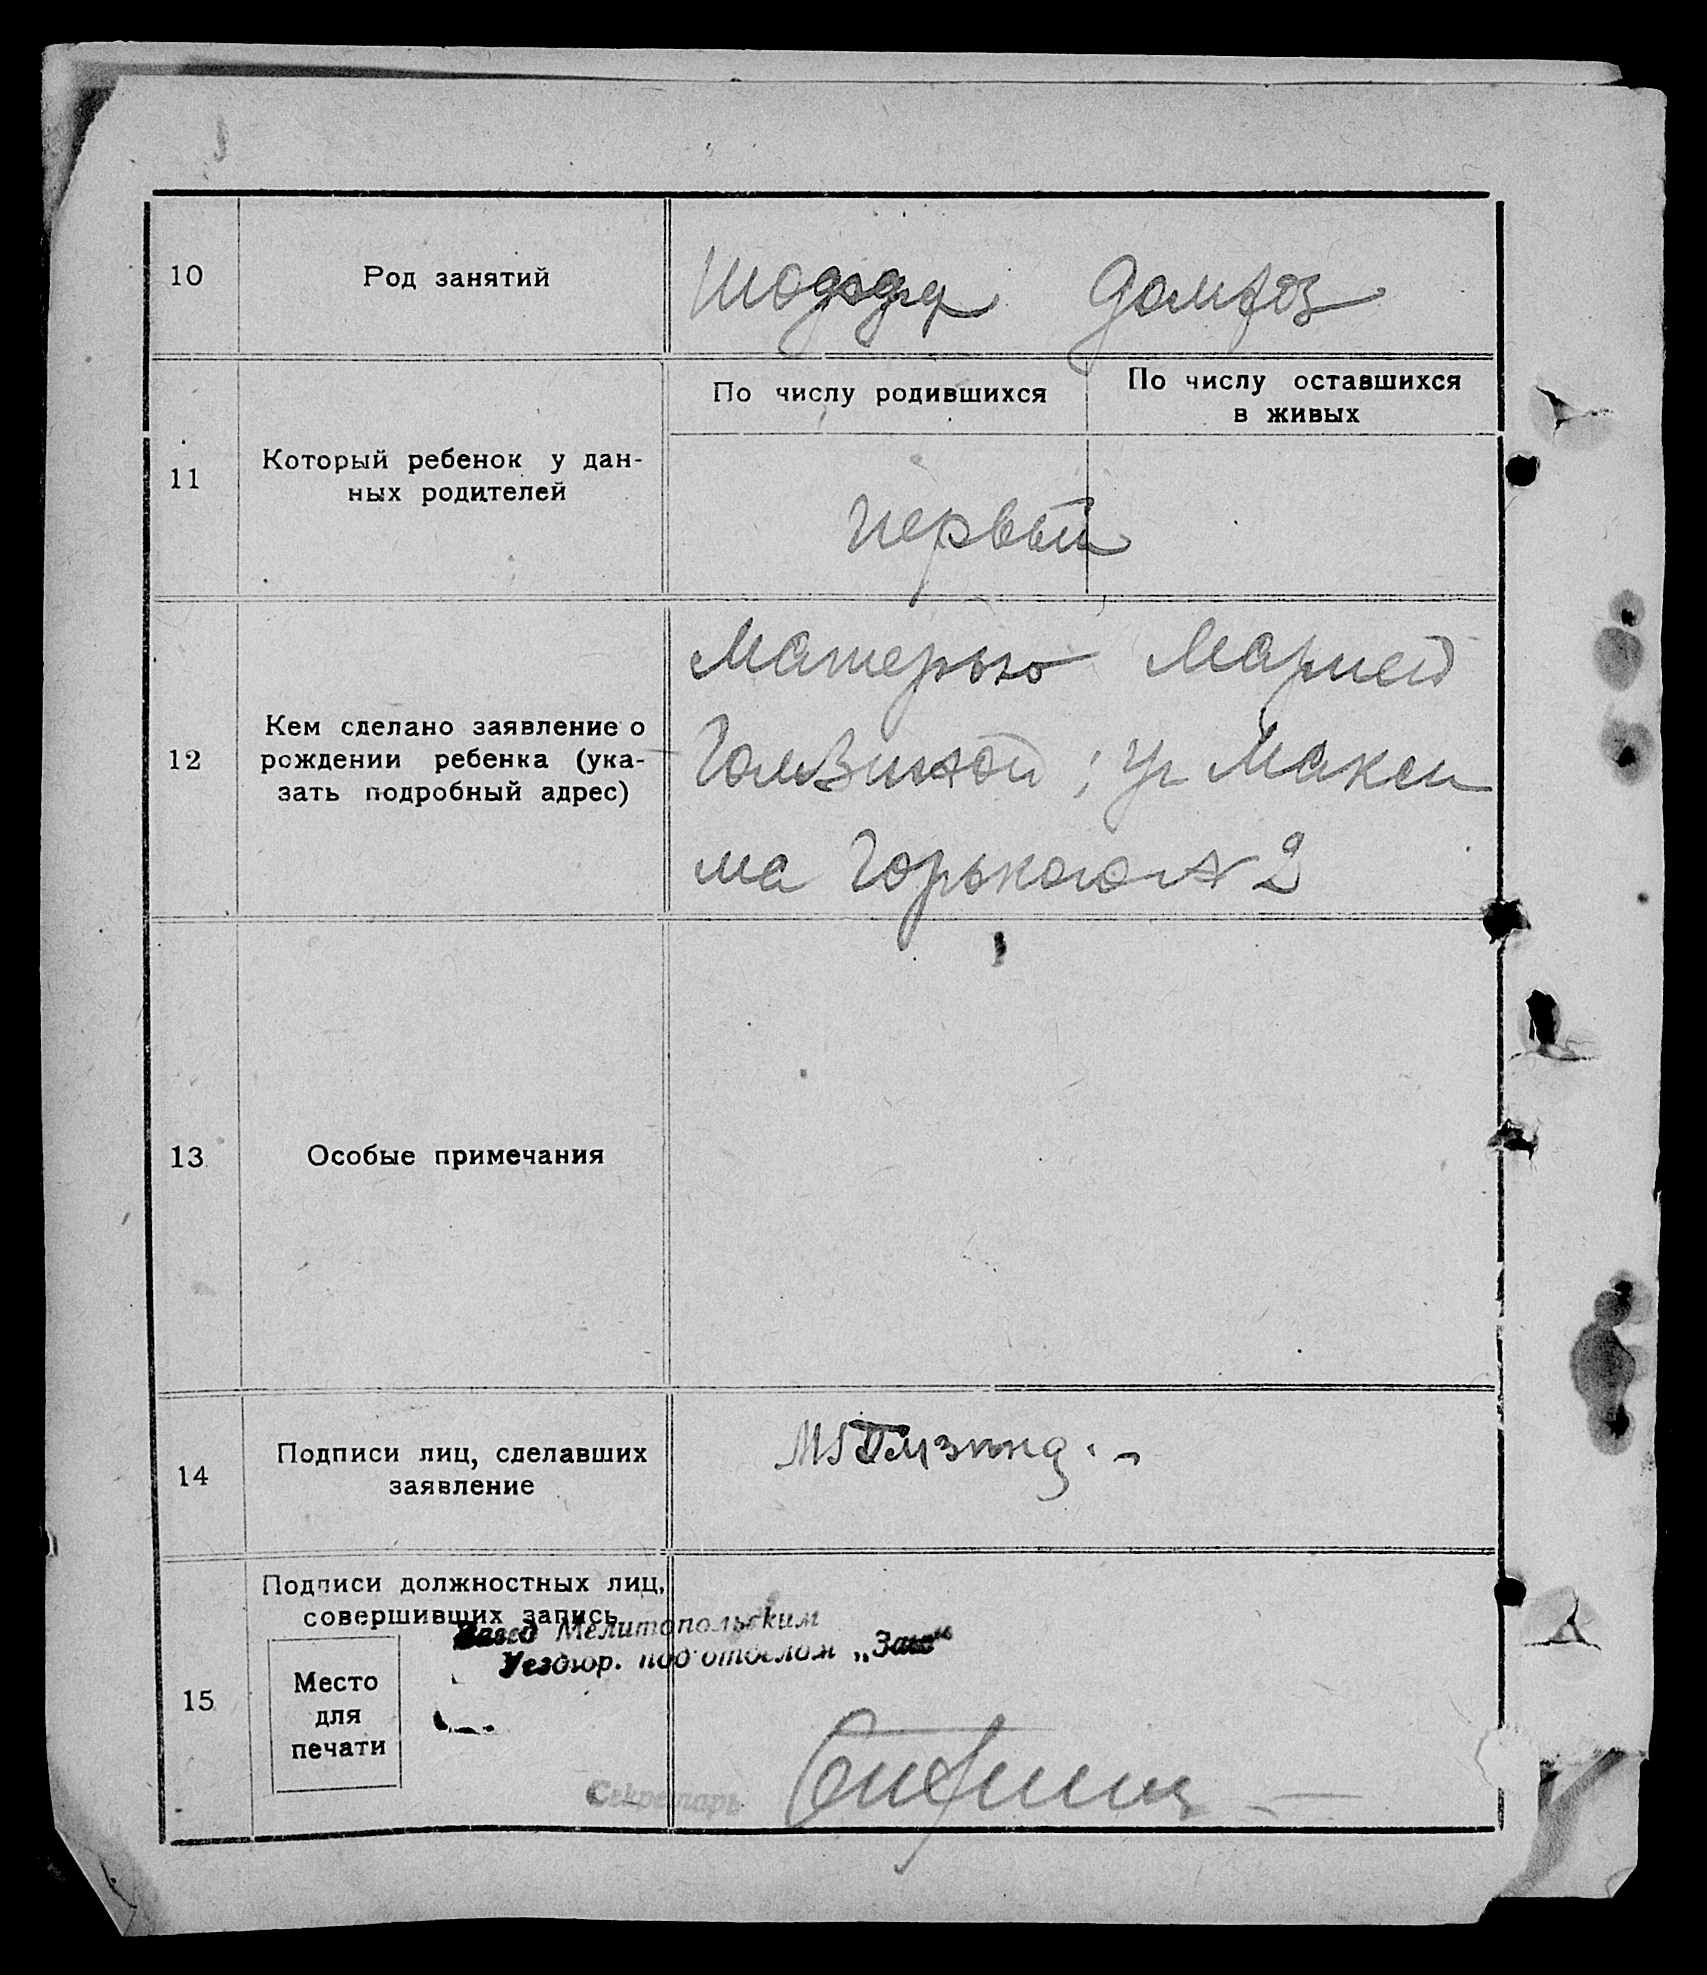 10 Род занятий
По числу родившихся
По числу оставшихся
в живых
11 Который ребенок у дан-
ных родителей
первый
12 Кем сделано заявление о
рождении ребенка (ука-
зать подробный адрес)
Матерью Марией
ул Макси
ма Горького № 2
13 Особые примечания
14 Подписи лиц, сделавших
заявление
15 Подписи должностных лиц,
совершивших запись
Завед Мелитопольским
Уездюр. подотделом „Загс“
Место
для
печати
Секретарь